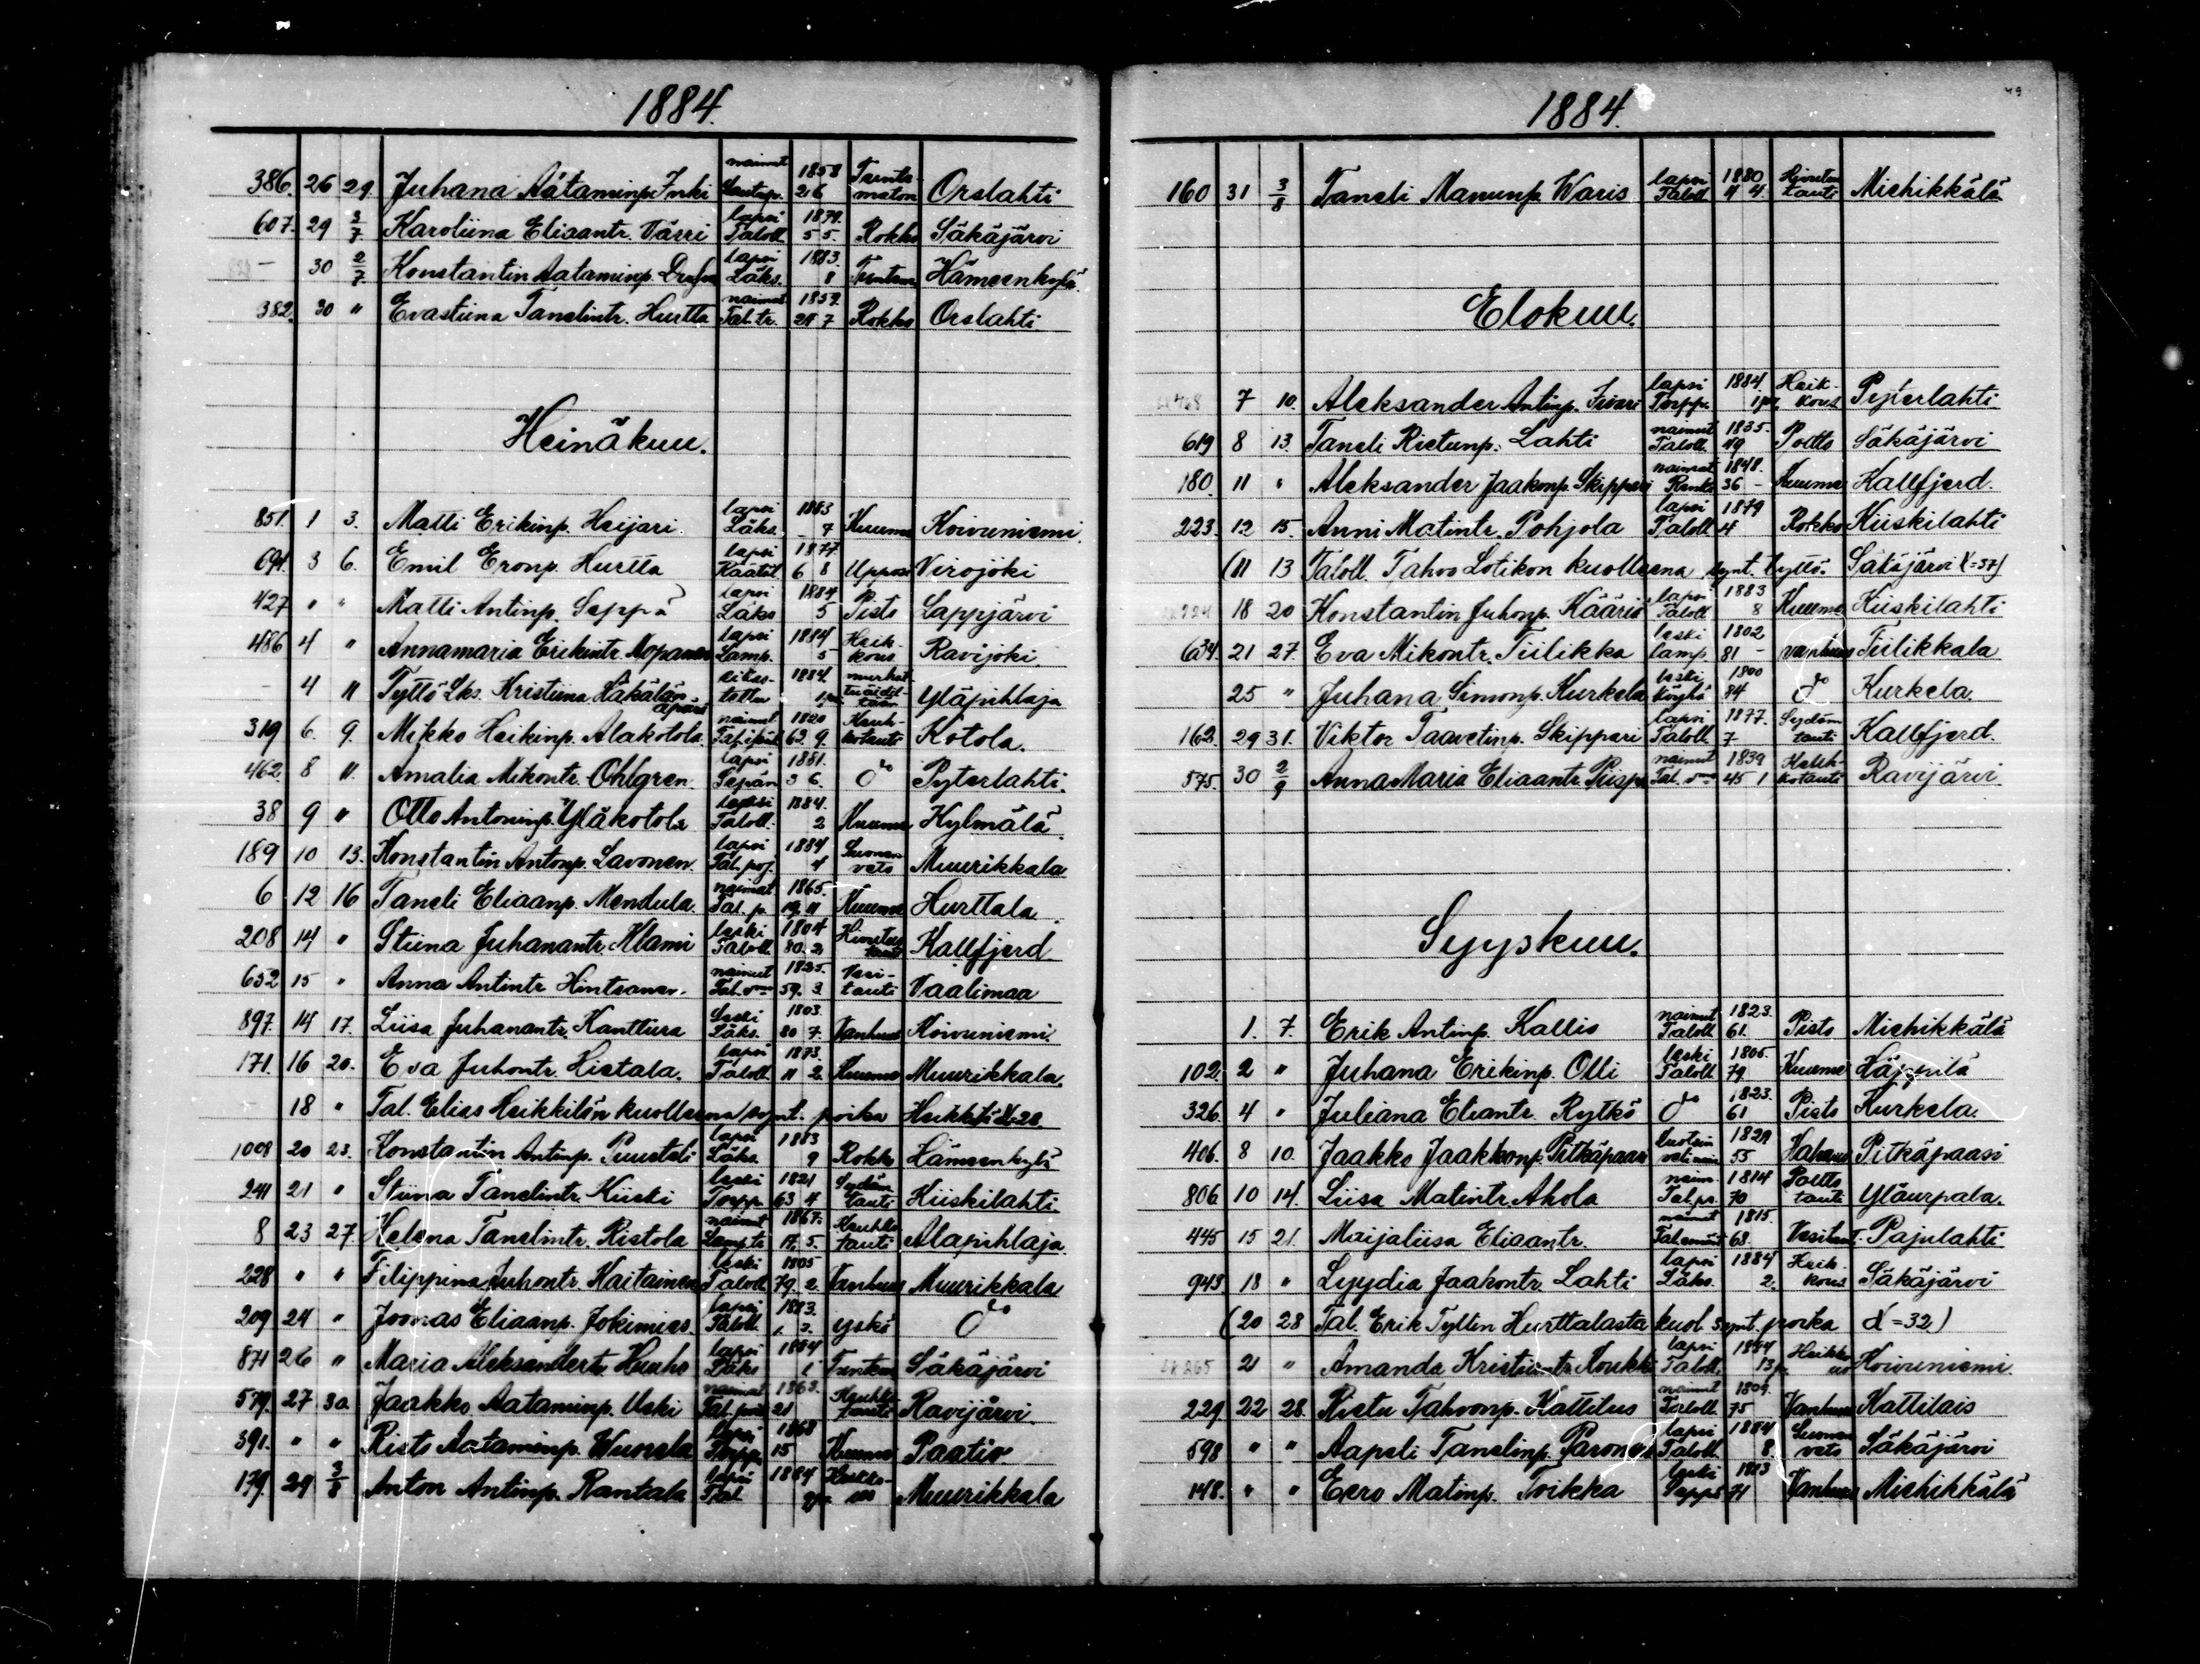 1884.
386. 26 29. Juhana Aataminp. Inki naimat 1858 26 Tunte-maton Orslahti
607. 29 3/7 Karoliina Eliaantr. Värri lapsi Taloll. 1879. 5 5. Rokko Säkäjärvi
— 30 2/7 Konstantin Aataminp. lapsi Läks. 1883. 8 Tuntem Hämeenkylä
382. 30 " Evastiina Tanelintr. Hurtta naimat. Tal. tr. 1859. 24 7 Rokko Orslahti
Heinäkuu.
851. 1 3. Matti Erikinp. Heijari lapsi Läks. 1883 - 7 Kuume Koivuniemi.
694. 3 6. Emil Eronp. Hurtta lapsi Käätäl. 1877. 6 8 Uppos. Virojoki
427 " " Matti Antinp. Seppä lapsi Läks 1884 5 Pisto Lappjärvi
486 4 " Annamaria Erikintr. Mopanen lapsi Lamp. 1884 5 Heik-kous Ravijoki
— 4 11 Tyttö Lks. Kristiina Läkälän 1884. murhat Yläpihlaja
319 6. 9. Mikko Heikinp. Alakotola. naimat 1820 63. 9. Keuh-kotauti Kotola.
462. 8 11. Amalia Mikontr. Ohlgren. lapsi Sepän 1881. 3 6. do Pyterlahti.
38 9 " Otto Antoninp. Yläkotola lapsi Taloll. 1884. 2 Kuume Kylmälä
189 10 13. Konstantin Antonp. Lavonen. lapsi Tal. poj. 1884 4 Suonen veto Muurikkala
6 12 16 Taneli Eliaanp. Mendula. naimat. Tal. p. 1865. 19 11 Kuume Hurttala
208 14 " Stiina Juhanantr. Klami leski Taloll. 1804 80. 2 Hivutus tauti Kallfjerd
652 15 " Anna Antintr Hintsanen. naimat 1825. 59. 3. Vesi-tauti Vaalimaa
897. 14 17. Liisa Juhanantr. Kanttura Leski Läks. 1803. 80 7. Vanhuus Koivuniemi.
171. 16 20. Eva Juhontr. Hietala. lapsi Taloll. 1873. 11 2. Kuume Muurikkala.
18 " Tal. Elias Heikkilän kuolleena synt. poika Heikkilä N=28
1008 20 23. Konstantin Antinp. Puusteli lapsi Läks. 1883 9 Rokko Hämeenkylä
241 21 " Stiina Tanelintr. Kiiski leski Torpp. 1821 63 4 Sydän tauti Kiiskilahti.
8 23 27 Helena Tanelintr. Ristola naimat Lamp. tr. 1867. 17. 5. Keuhko tauti Alapihlaja
228 " " Filippina Juhontr. Kaitainen leski Taloll 1805 79. 2. Vanhuus Muurikkala
209 24 " Joonas Eliaanp. Jokimies. lapsi Taloll. 1883. 1. 2. yskö do
871 26 " Maria Aleksandertr. Huuho lapsi Läks 1884 1 Tuntem Säkäjärvi
579. 27 30 Jaakko Aataminp. Uski naimat. 1863. 21 Keuhko tauti Ravijärvi
391. " " Risto Aataminp. Wuorela lapsi Torpp. 1868 15 Kuume Paatio
179. 29 3/8 Anton Antinp. Rantala lapsi Tal. 1884 Heikko-us Muurikkala
1884.
49
160 31 3/8 Taneli Manunp. Waris lapsi Taloll 1880 4 4. Hivutus tauti Miehikkälä
Elokuu.
7 10. Aleksander Antinp. lapsi Torpp. 1884. Heik-kous Pyterlahti
619 8 13. Taneli Rietunp. Lahti naimat Taloll. 1835. 49 Poltto Säkäjärvi
180. 11 " Aleksander Jaakonp. Skippari naimat 1848. 36 - Kuume Kallfjerd.
223. 12 15. Anni Matintr. Pohjola lapsi Taloll 1879 4 Rokko Kiiskilahti
(11 13 Taloll. Tahvo Lotikon kuolleena synt. tyttö. Säkäjärvi N=37)
18 20 Konstantin Juhonp. Kääriä lapsi Taloll 1883 8 Kuume Kiiskilahti
634. 21 27. Eva Mikontr. Tiilikka leski lamp. 1802 81 - vanhuus Tiilikkala
25 " Juhana Simonp. Kurkela leski köyhä 1800 84 do Kurkela.
162. 29 31. Viktor Taavetinp. Skippari lapsi Taloll. 1877. 7 - Sydän tauti Kallfjerd.
575. 30 2/9 AnnaMaria Eliaantr. Piispa naimat 1839 45 1 Keuh-kotauti Ravijärvi
Syyskuu.
1. 7. Erik Antinp. Kallio naimat Taloll 1823. 61. Pisto Miehikkälä
102. 2 " Juhana Erikinp. Olli leski Taloll 1805. 79 Kuume Häppilä
326. 4 " Juliana Eliantr. Rytkö do 1823. 61 Pisto Kurkela.
406. 8 10. Jaakko Jaakkonp. Pitkäpaasi 1829 55 Pitkäpaasi
806. 10 14. Liisa Matintr. Ahola naim. 1814 70 Poltto tauti Yläurpala.
445 15 21. Maijaliisa Eliaantr. naimat Tal. emäntä 1815. 68. Vesitaut. Pajulahti
943. 18 " Lyydia Jaakontr. Lahti lapsi Läks. 1884 2. Heik-kous Säkäjärvi
(20 28 Tal. Erik Tyllin Hurttalasta kuol. synt. poika N=32)
21 " Amanda Kristiantr. Koukki lapsi Taloll. 1884 13 p. Heikko us Koivuniemi.
229 22 28. Rietu Tahvonp. Kattilus naimat Taloll 1809. 75 Vanhuus Kattilais
598 " " Aapeli Tanelinp. Paronen lapsi Taloll. 1884 8. Suonen veto Säkäjärvi
148. " " Eero Matinp. Toikka leski Seppä 1813 71 Vanhuus Miehikkälä